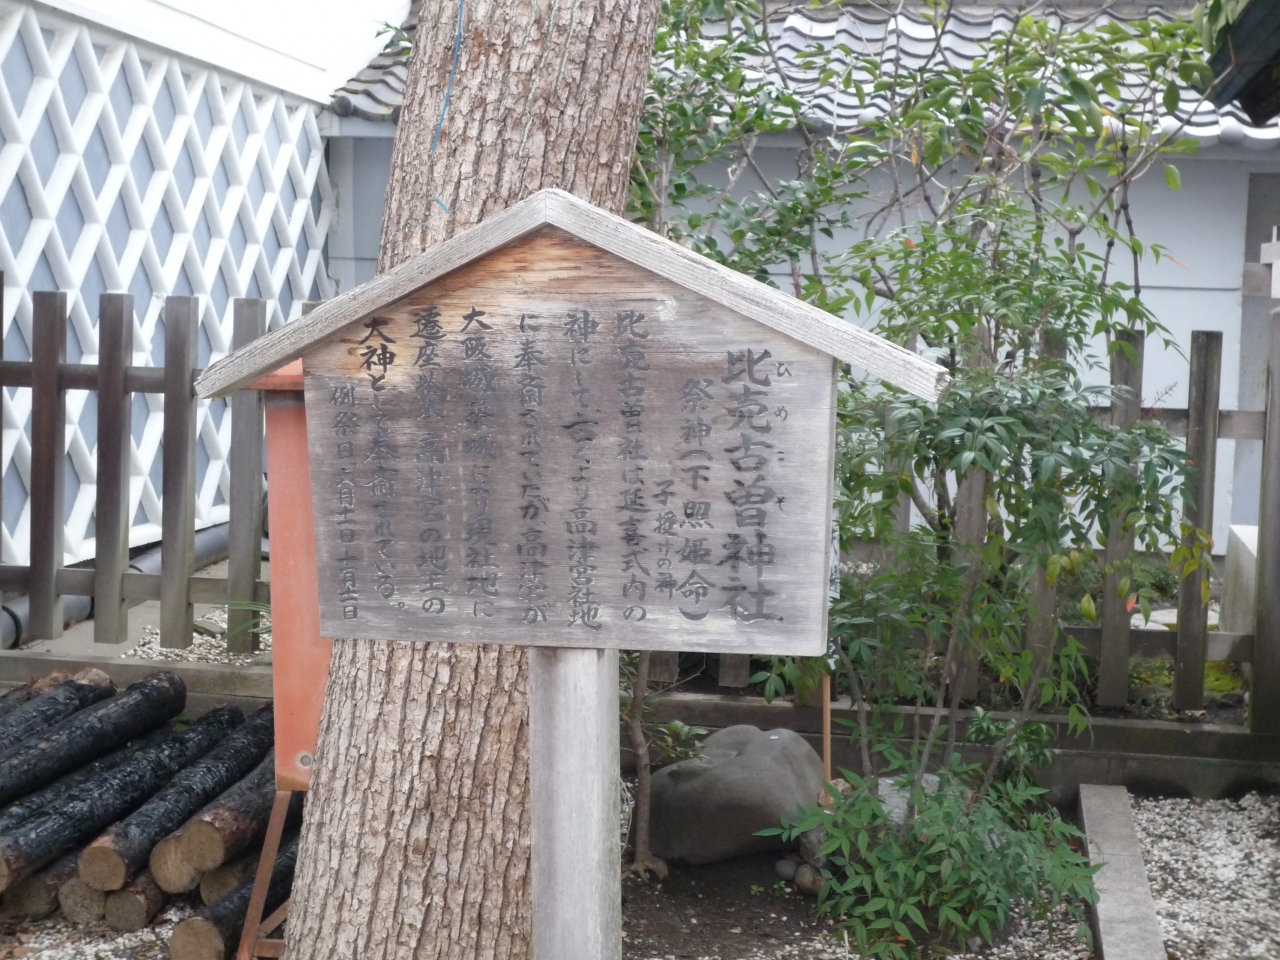 比売古曽神社
ひめこそ
祭神(下照姫命)
子授けの神
比売古曽社は延喜式内の
神にして、古くより高津宮社地
に奉斎されていたが、高津宮が
大阪城築城により現社地に
遷座後、高津宮の地主の
大神として奉斎されている。
例祭日、六月十一日 十月